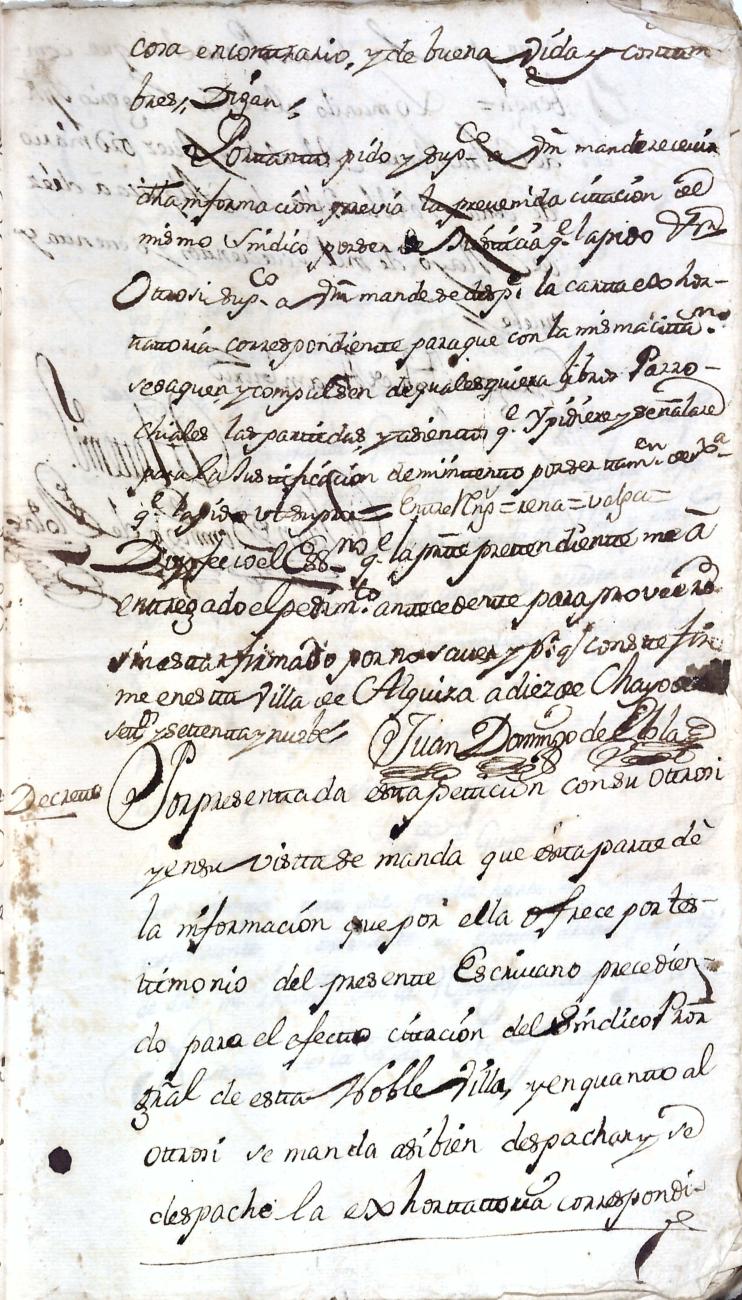 cosa encontrario, y de buena vida y costum
bres, Digan
Portanto pido y sup.co a Vm mande recevir
dha informacion previa la prevenida citacion del
mismo Sindico por ser de Justicia q.e la pido Vtra
Ottrosi sup.co a Vm mande se desp.e la cartta exhor-
tatoria correspondiente para que con la misma citta.n
se saquen y compulsen de qualesquiera libros Parro-
chiales las parttidas, y asientos q.e Ypidiere y señalare
para la Justificacion de mi intento por ser tam.en de Jx.a
q.e la pido vt supra = Entre Rens = rena = valga =
Doy fee io el Ess.no q.e la partte prettendiente me á
entregado el pedim.to antecedente para proveerse
sin estar firmado por no saver y p.a q.e conste fir
me en esta Villa de Alquiza a diez de Mayo de
sett.os y settenta y nueve
Juan Domingo de Elola
Decreto
Por presentada esta petticion con su ottrosi
y en su vistta se manda que esta parte dè
la informacion que por ella ofrece por tes-
timonio del presente Escrivano precedien-
do para el efecto citacion del Sindico Pror
gral de esta Noble Villa, y en quanto al
ottrosi se manda asibien despachar y se
despache la exhorttattoria correspondi-